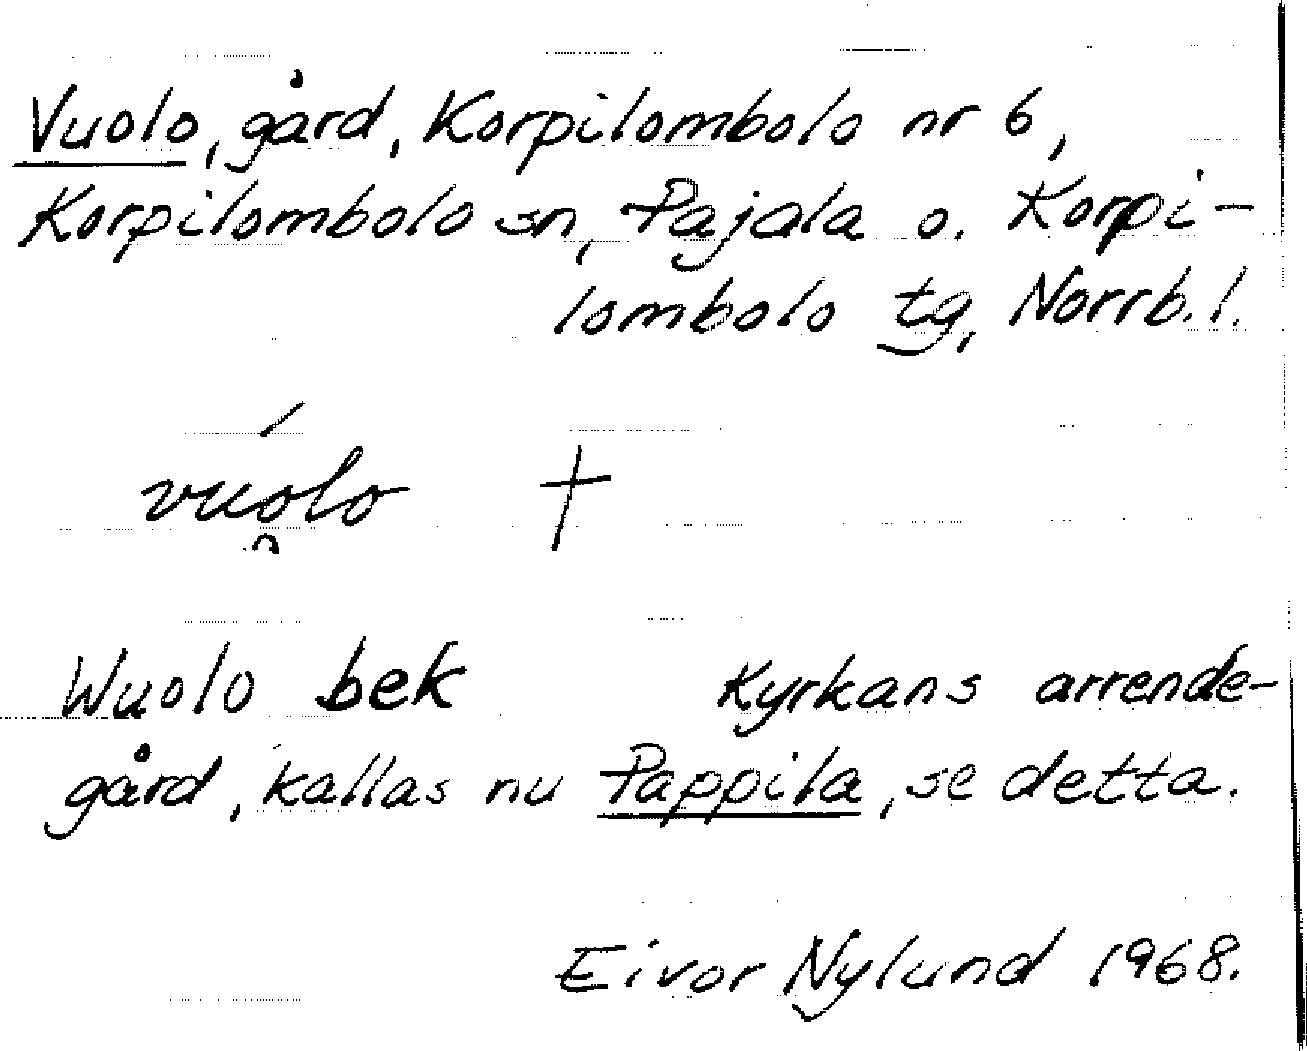 Vuolo, gård, Korpilombolo nr 6,
Korpilombolo sn, Pajala o. Korpi-
lombolo tg, Norrb. l.
vúo̯lo †
Wuolo bek Kyrkans arrende-
gård, kallas nu Pappila, se detta.
Eivor Nylund 1968.